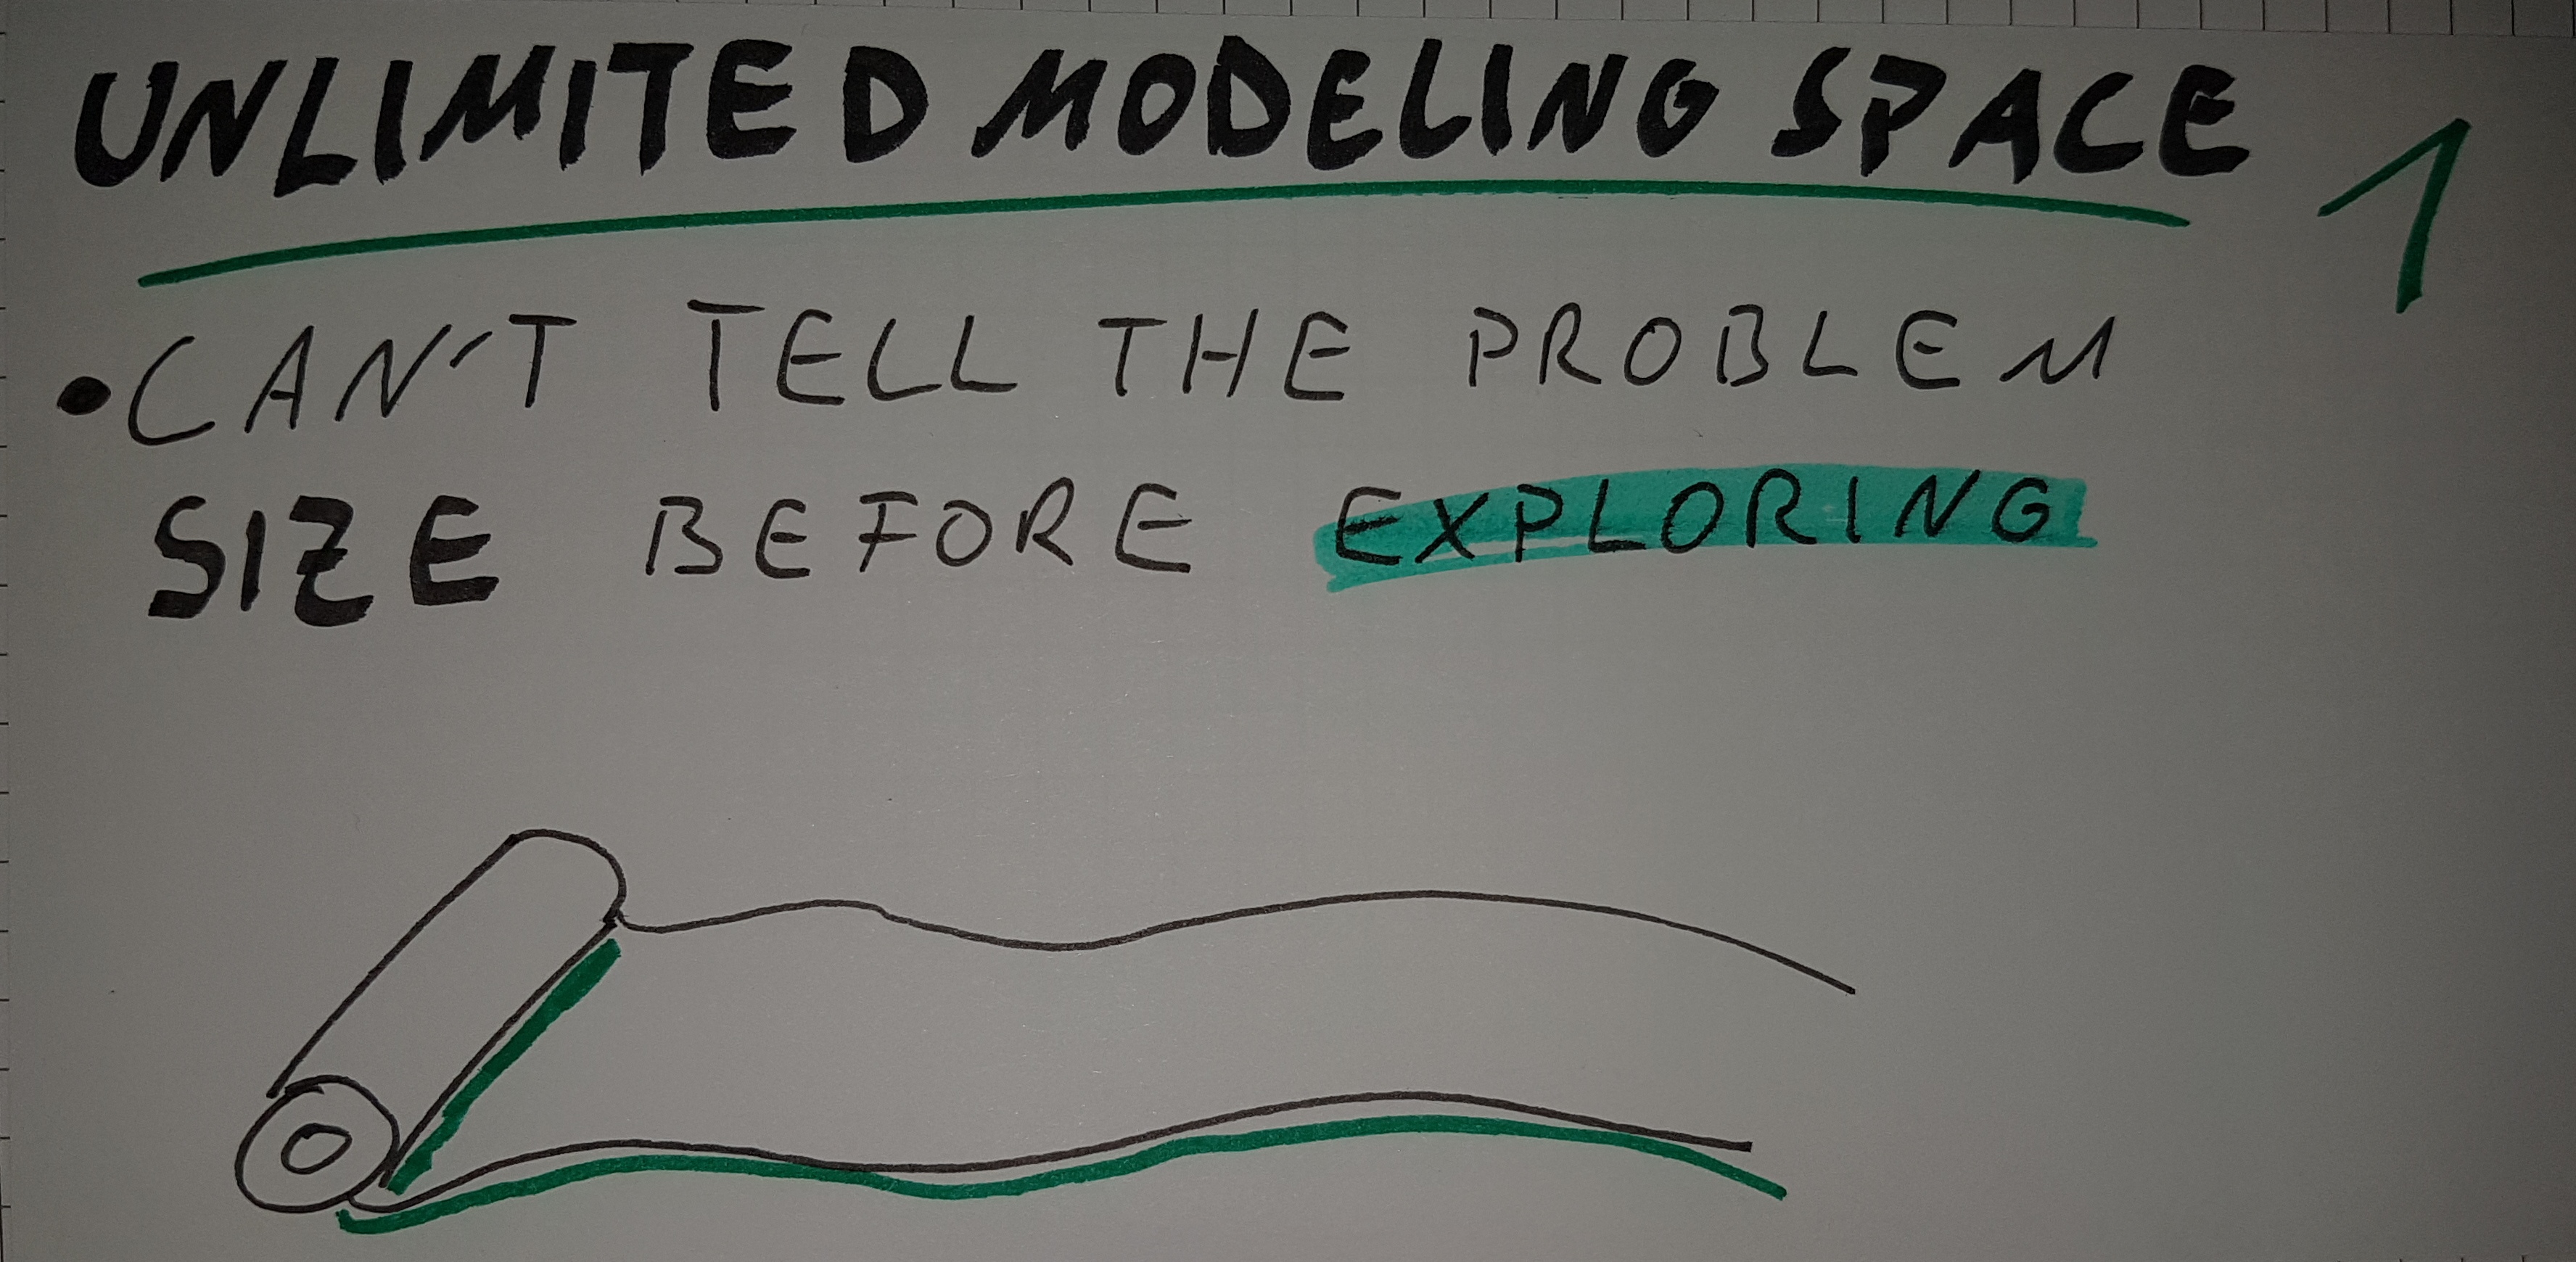 UNLIMITED MODELING SPACE 1
• CAN'T TELL THE PROBLEM
SIZE BEFORE EXPLORING